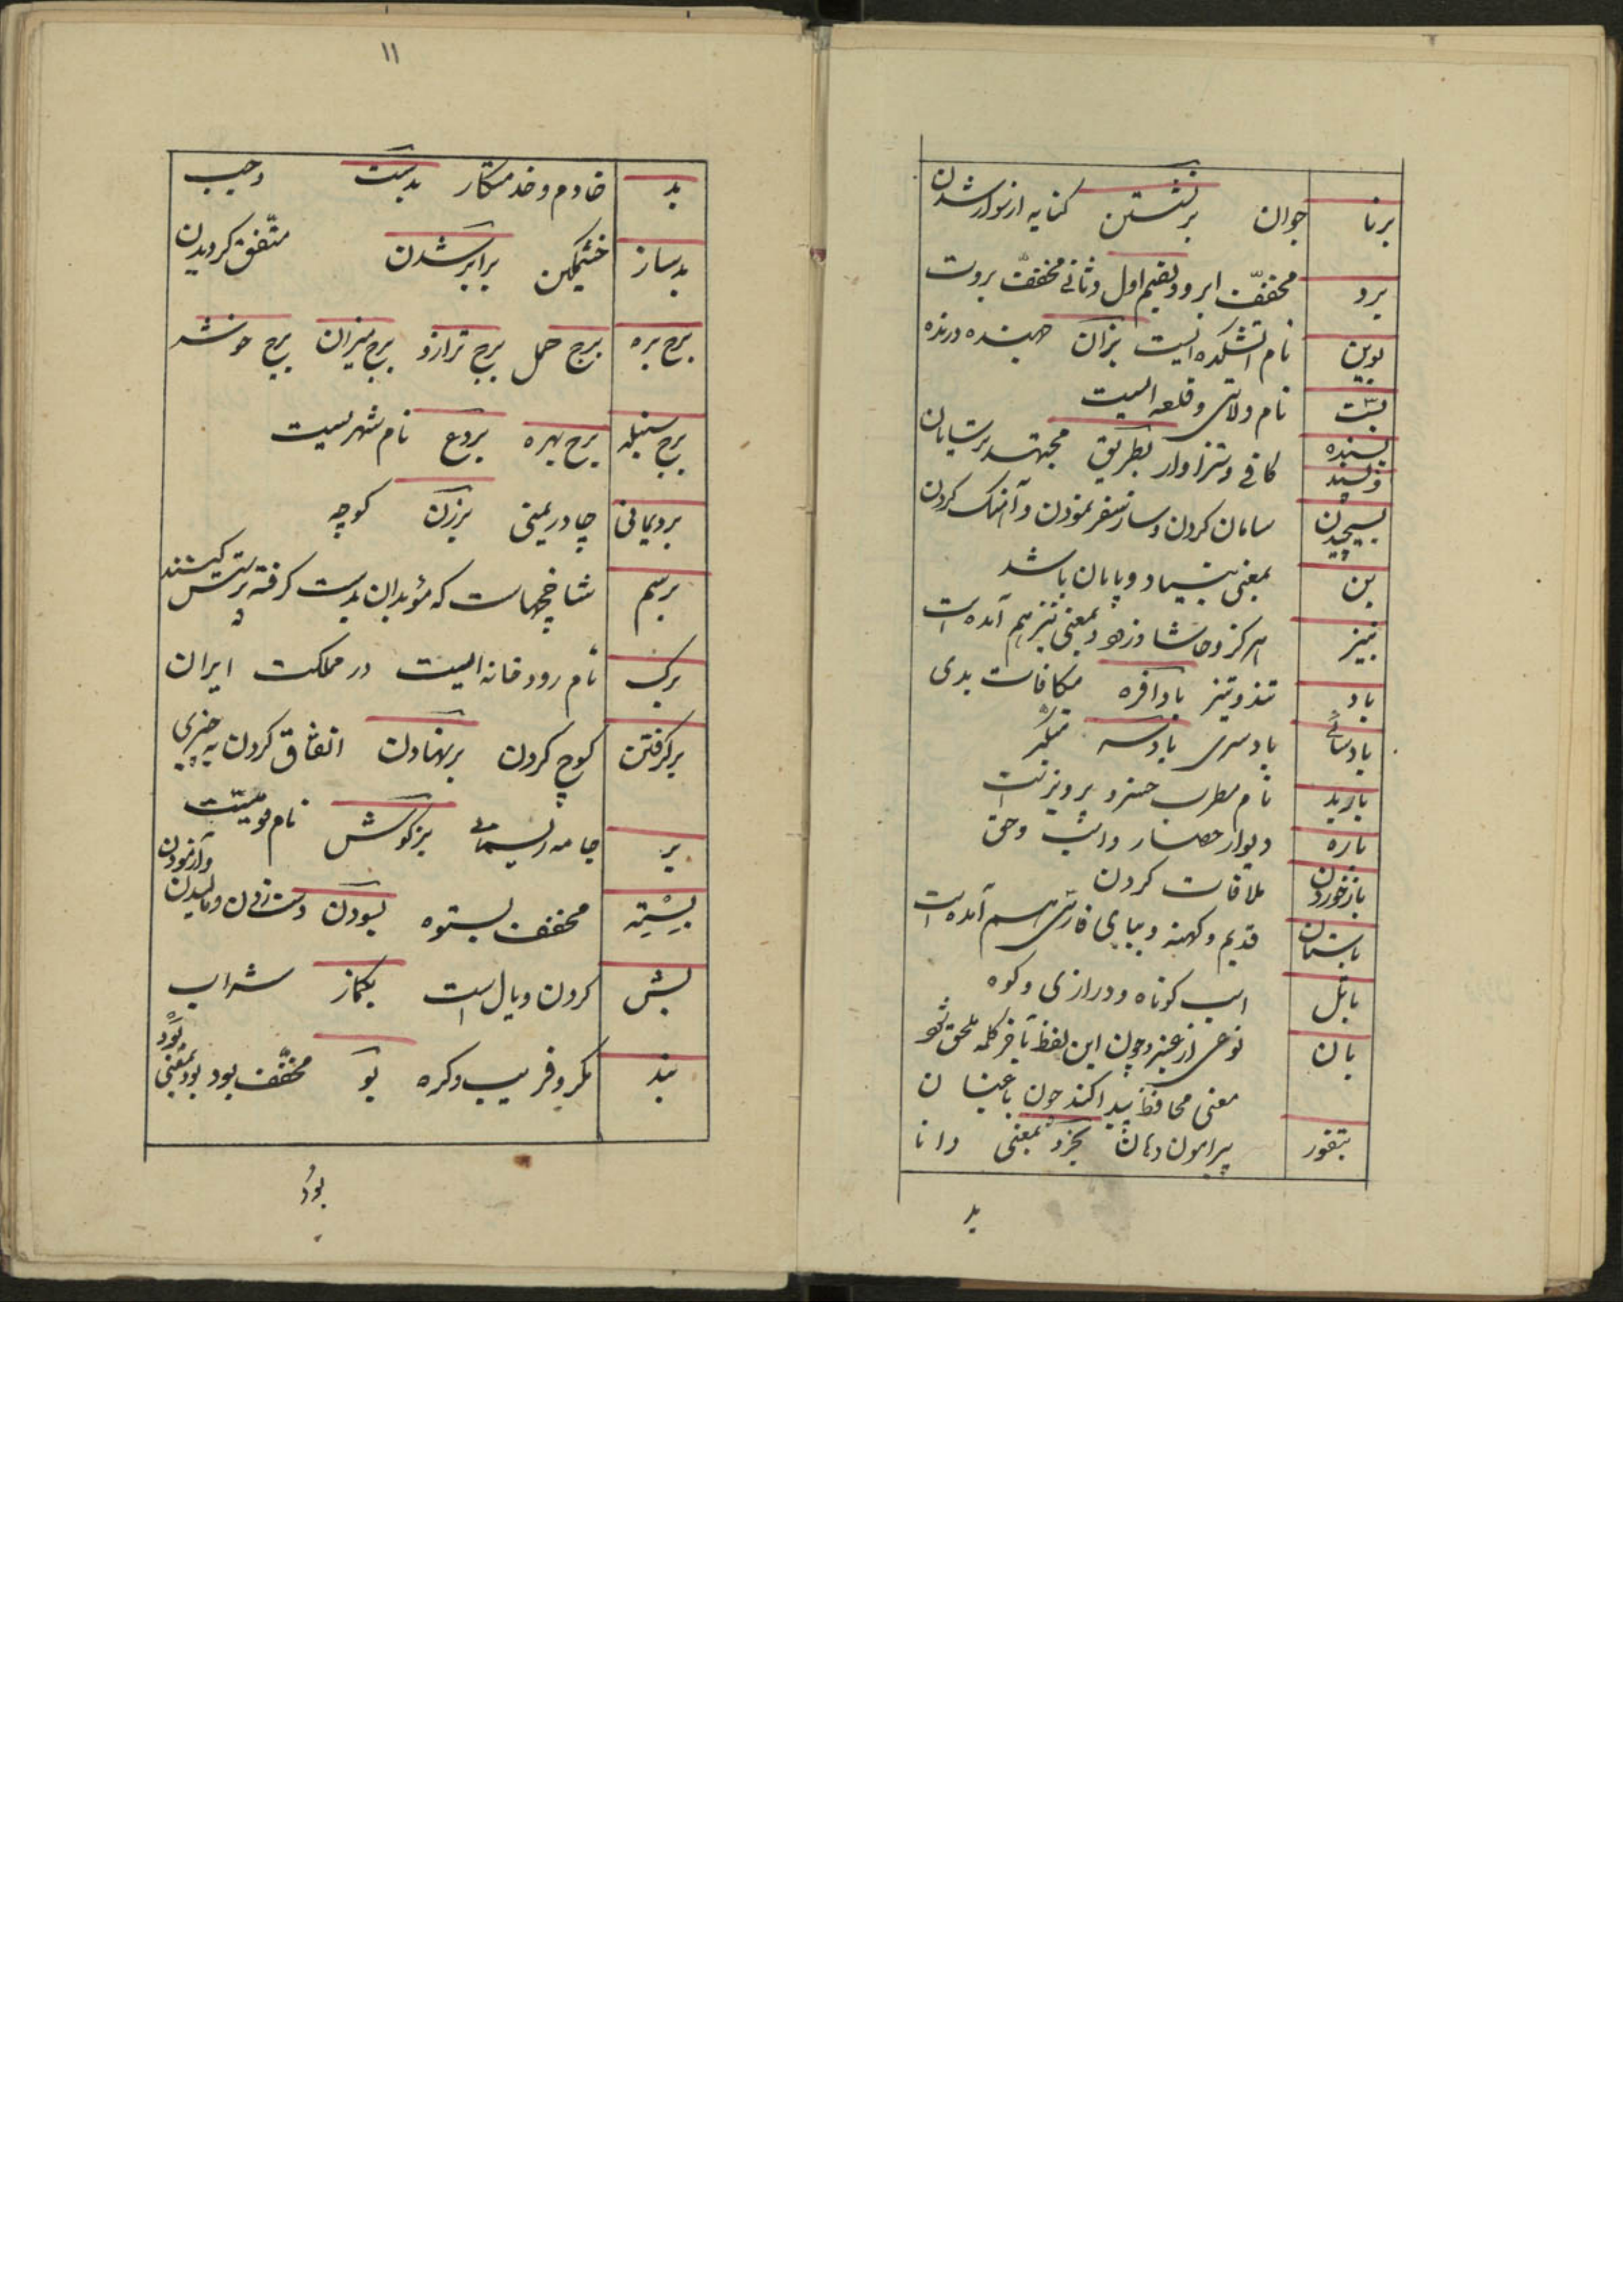 برنا جوان برنشستن کنایه از سوار شدن
برو مخفّف ابرو و بضم اول و ثانی مخفّف بروت
نام آتشکده ایست بزان جهنده و رنده
بست نام ولایتی و قلعه ایست
بسنده کافی و سزاوار بطریق مجتهد ترسایان
بسیچیدن سامان کردن و ساز سفر نمودن و آهنگ کردن
بن بمعنی بنیاد و پایان باشد
بنیز هرگز و حاشا و زود و بمعنی نیز هم آمده است
باد تند و تیز بادافره مکافات بدی
بادسری بادسه تکبّر
باربد نام مطرب خسرو پرویزست
باره دیوار حصار و اسب و حق
بازخوردن ملاقات کردن
باستان قدیم و کهنه و ببای فارسی هم آمده است
اسب کوتاه و درازی و کوه
بان نوعی از عنبر و چون این لفظ بآخر کلمه ملحق شو
معنی محافظ پیدا کند چون باغبان
بتفور پیرامون دهان بخرد بمعنی دانا
بد
۱۱
بد خادم و خدمتکار بدست وجب
بدساز خشمگین برابر شدن متّفق گردیدن
برج بره برج حمل برج ترازو برج میزان برج خوشه
برج سنبله برج بهره بردع نام شهریست
بردیمانی چادر یمنی برزن کوچه
برسم شاخچهاست که مؤبدان بدست گرفته پرستش کنند
برک نام رودخانه ایست در مملکت ایران
برگرفتن کوچ کردن برنهادن اتفاق کردن به چیزی
بز جامه ریسمانی بزگوش نام قومیست
بستِه مخفف بستوه بسودن دست زدن و مالیدن
و آزمودن
بش گردن و یال است بگماز شراب
بند مکر و فریب و گره بو مخفّف بود بود بمعنی
بُوَد
بود